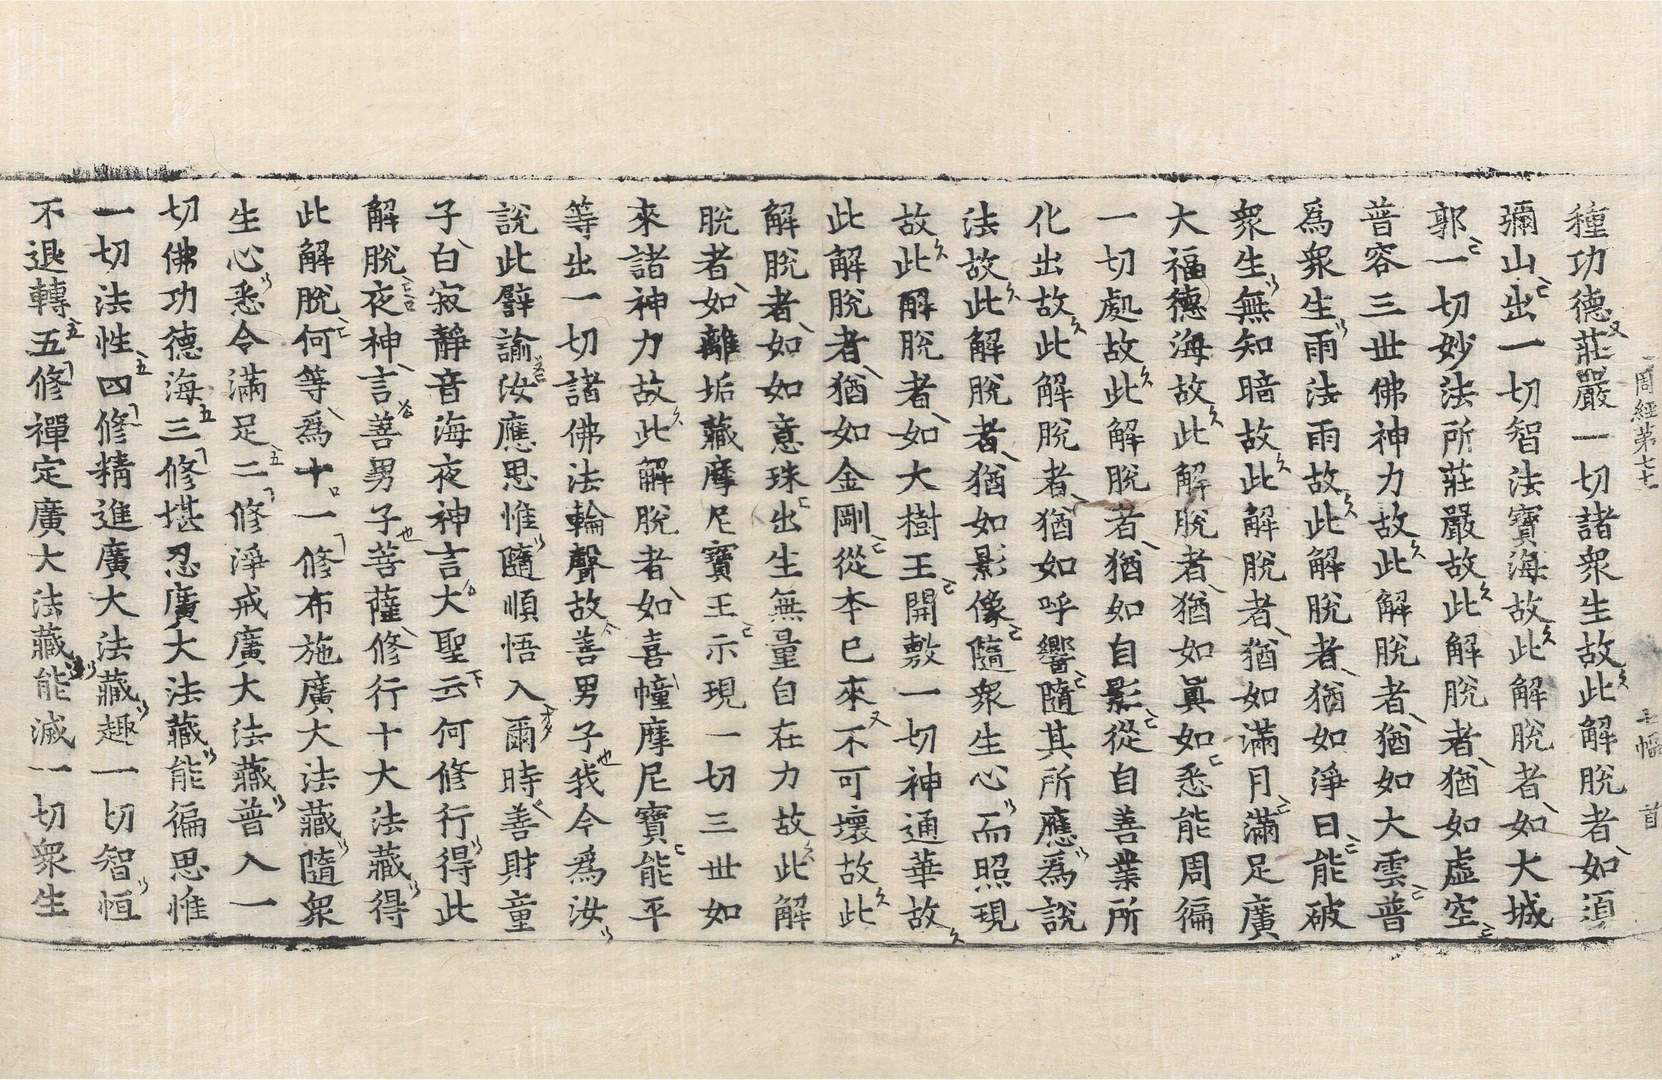 周經第七十
種功德莊嚴一切諸衆生故此解脫者如須
彌山出一切智法寶海故此解脫者如大城
郭一切妙法所莊嚴故此解脫者猶如虛空
普容三世佛神力故此解脫者猶如大雲普
爲衆生雨法雨故此解脫者猶如淨日能破
衆生無知暗故此解脫者猶如滿月滿足廣
大福德海故此解脫者猶如眞如悉能周徧
一切處故此解脫者猶如自影從自善業所
化出故此解脫者猶如呼響隨其所應爲說
法故此解脫者猶如影像隨衆生心而照現
故此解脫者如大樹王開敷一切神通華故
此解脫者猶如金剛從本已來不可壞故此
解脫者如如意珠出生無量自在力故此解
脫者如離垢藏摩尼寶王示現一切三世如
來諸神力故此解脫者如喜幢摩尼寶能平
等出一切諸佛法輪聲故善男子我今爲汝
說此譬諭汝應思惟隨順悟入爾時善財童
子白寂靜音海夜神言大聖云何修行得此
解脫夜神言善男子菩薩修行十大法藏得
此解脫何等爲十一修布施廣大法藏隨衆
生心悉令滿足二修淨戒廣大法藏普入一
切佛功德海三修堪忍廣大法藏能徧思惟
一切法性四修精進廣大法藏趣一切智恒
不退轉五修禪定廣大法藏能滅一切衆生